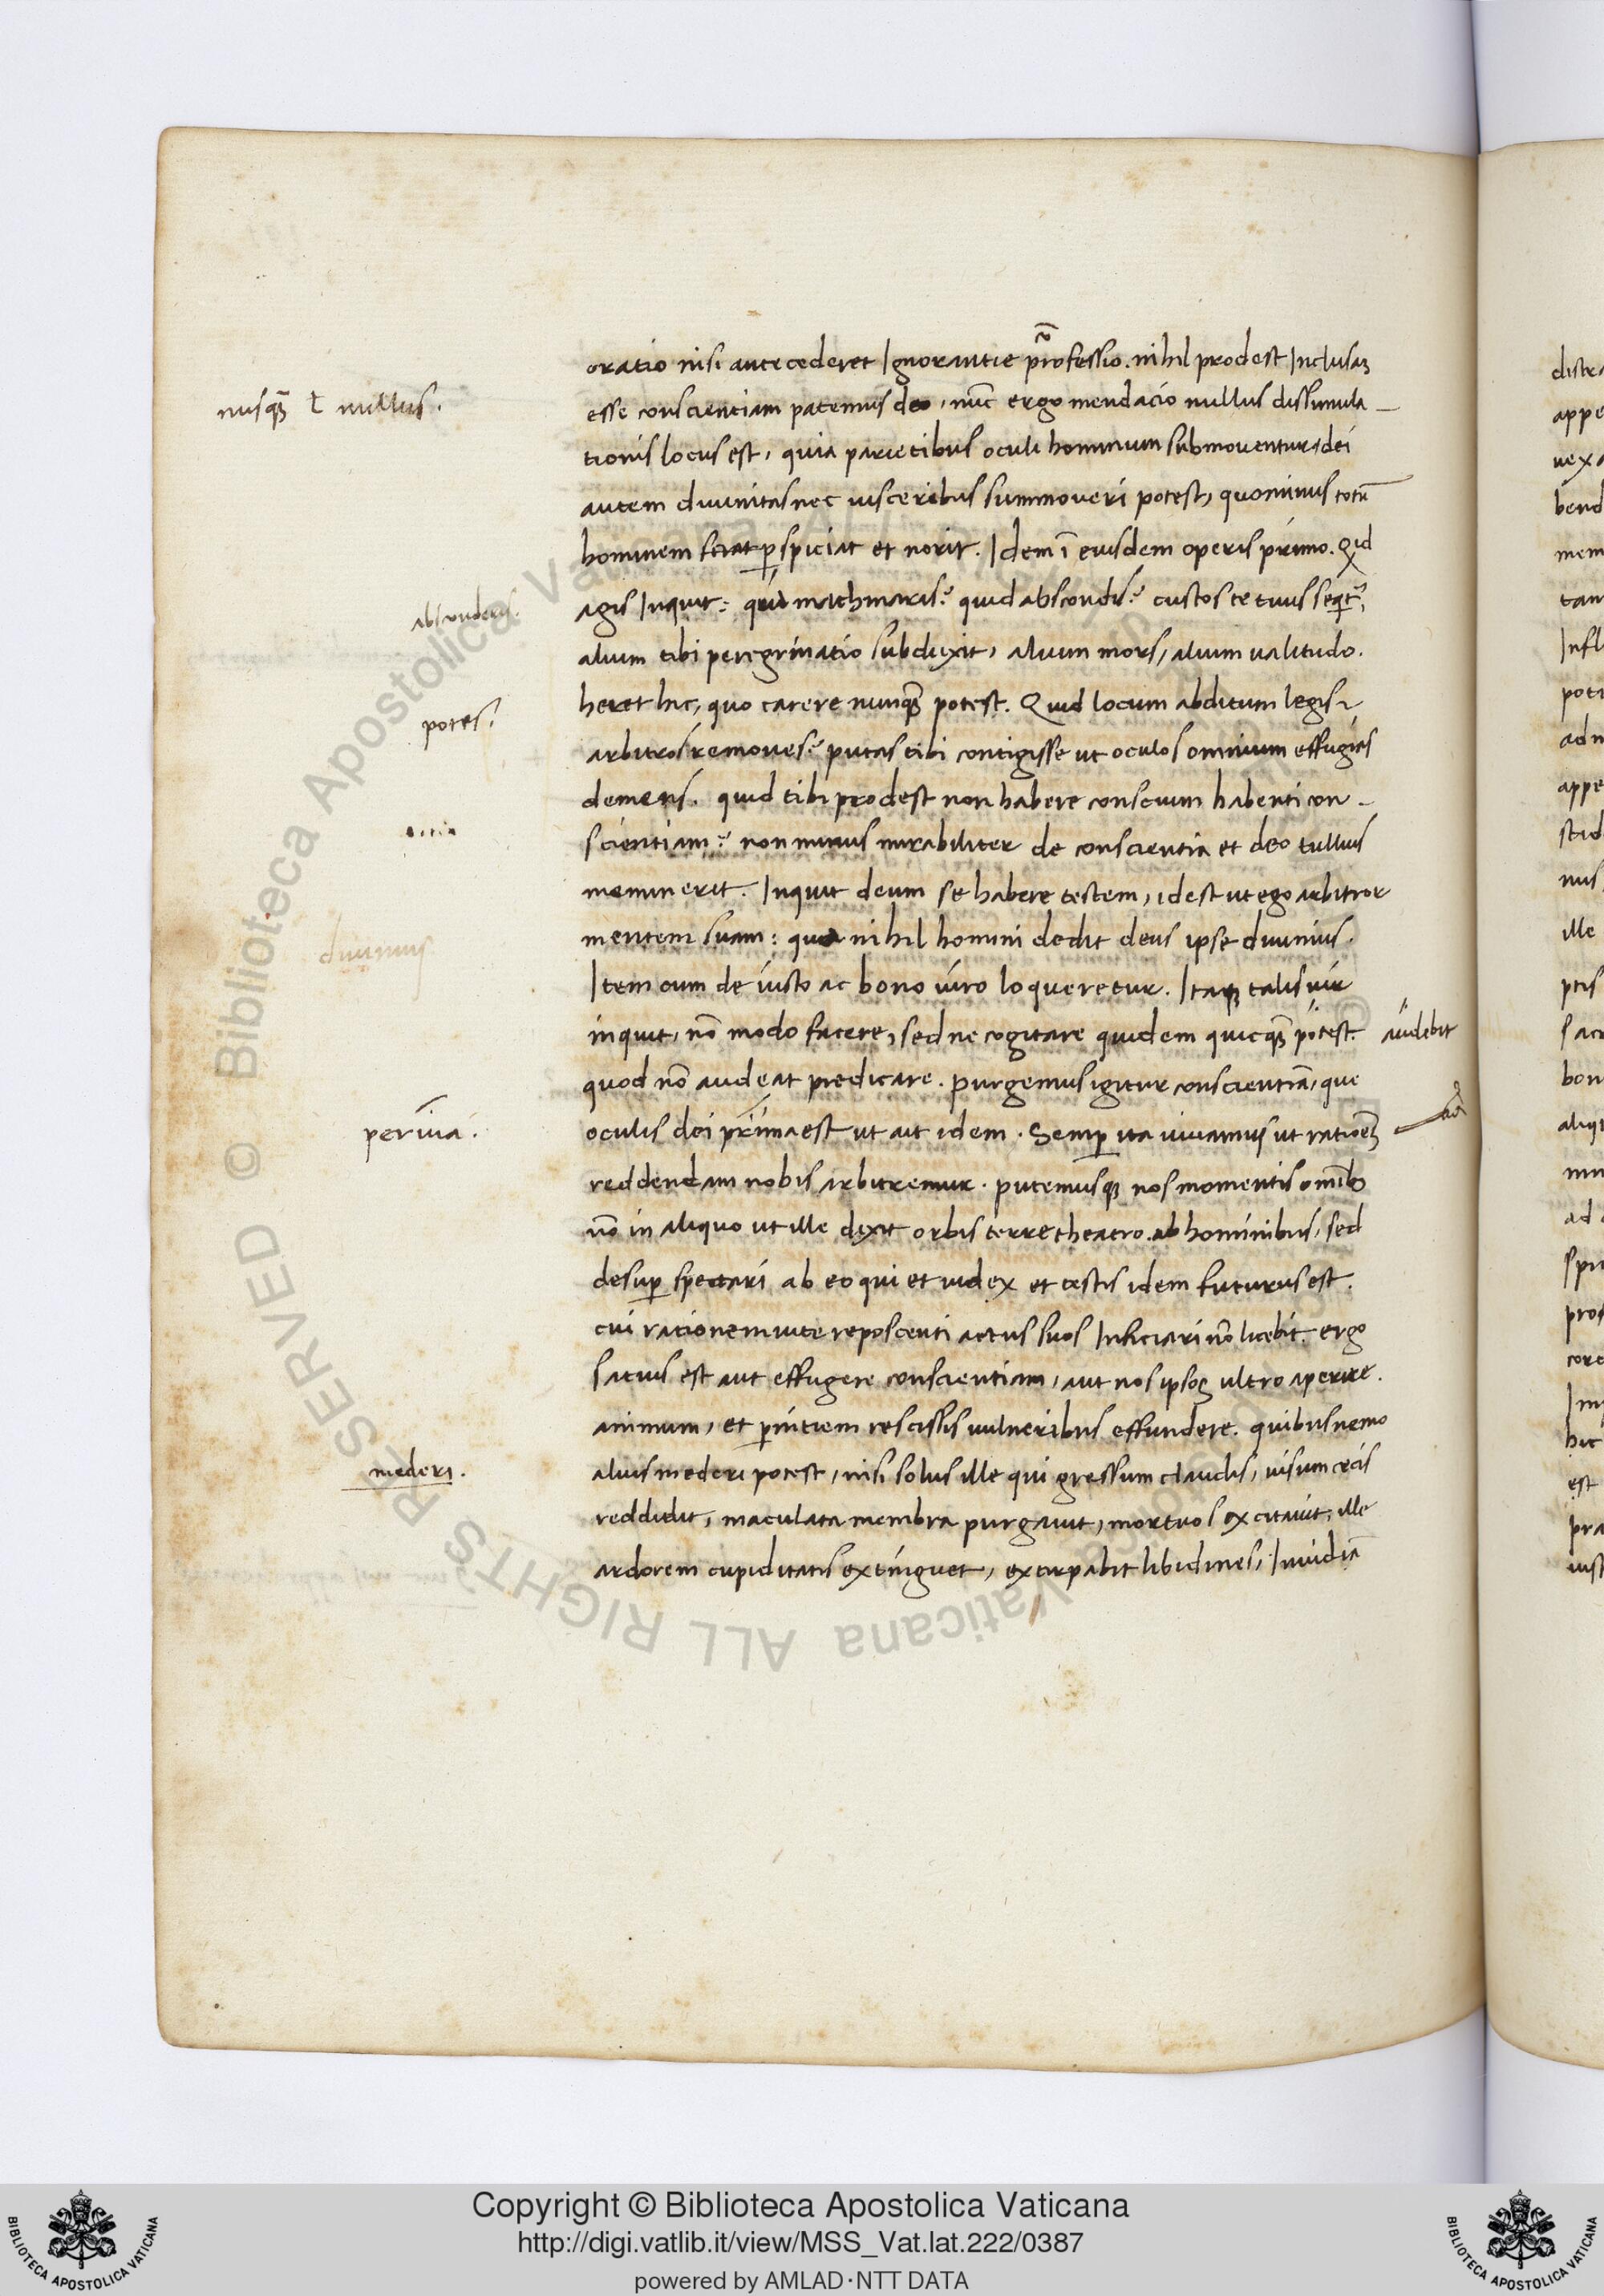 oratio nisi antecederet Ignorantie p̃rofessio. nihil prodest Inclusaʒ
nusqʒ̃ ƚ nullus.
esse conscientiam patemus deo, nũc ergo mendacio nullus dissimula_
tionis locus est, quia parietibus oculi hominum submoventur, dei
autem divinitas nec visceribus summoveri potest, quominus totũ
hominem p̲spiciat et norit. Idem ĩ eiusdem operis primo. Qid
agis Inquit: quid machinaris? quid abscondis? custos te tuus seqt̃,
absconderis.
alium tibi peregrinatio subduxit, alium mors, alium valitudo.
heret hic, quo carere nunqʒ̃ potest. Quid locum abditum legis?
potes.
arbitros removes? putas tibi contigisse ut oculos omnium effugias
demens. quid tibi prodest non habere conscium habenti con_
scientiam? non minus mirabiliter de conscientia et deo tullius
meminerit. Inquit deum se habere testem, idest ut ego arbitror
mentem suam: quo nihil homini dedit deus ipse divinius.
divinius
Item cum de iusto ac bono viro loqueretur. Itaqʒ talis vir
inquit, nõ modo facere, sed ne cogitare quidem quicqʒ̃ potest.
audebit
quod nõ audeat predicare. purgemus igitur conscientiã, que
oculis dei prima est ut ait idem. Semp̲ ita vivamus ut rationẽ
pervia.
reddendam nobis arbitremur. putemusqʒ nos momentis omĩbꝯ
nõ in aliquo ut ille dixit orbis terre theatro. ab hominibus, sed
desup̲ spectari ab eo qui et iudex et testis idem futurus est.
cui rationem vite reposcenti actus suos Inficiari nõ licebit. ergo
satius est aut effugere conscientiam, aut nos ipsos ultro aperire.
animum, et p̲nitiem rescissis vulneribus effundere. quibus nemo
alius mederi potest, nisi solus ille qui gressum claudis, visum cecis
mederi.
reddidit, maculata membra purgavit, mortuos excitavit, ille
ardorem cupiditatis extinguet, extirpabit libidines, Invidiã
Copyright © Biblioteca Apostolica Vaticana
http://digi.vatlib.it/view/MSS_Vat.lat.222/0387
powered by AMLAD·NTT DATA
BIBLIOTECA APOSTOLICA VATICANA
BIBLIOTECA APOSTOLICA VATICANA